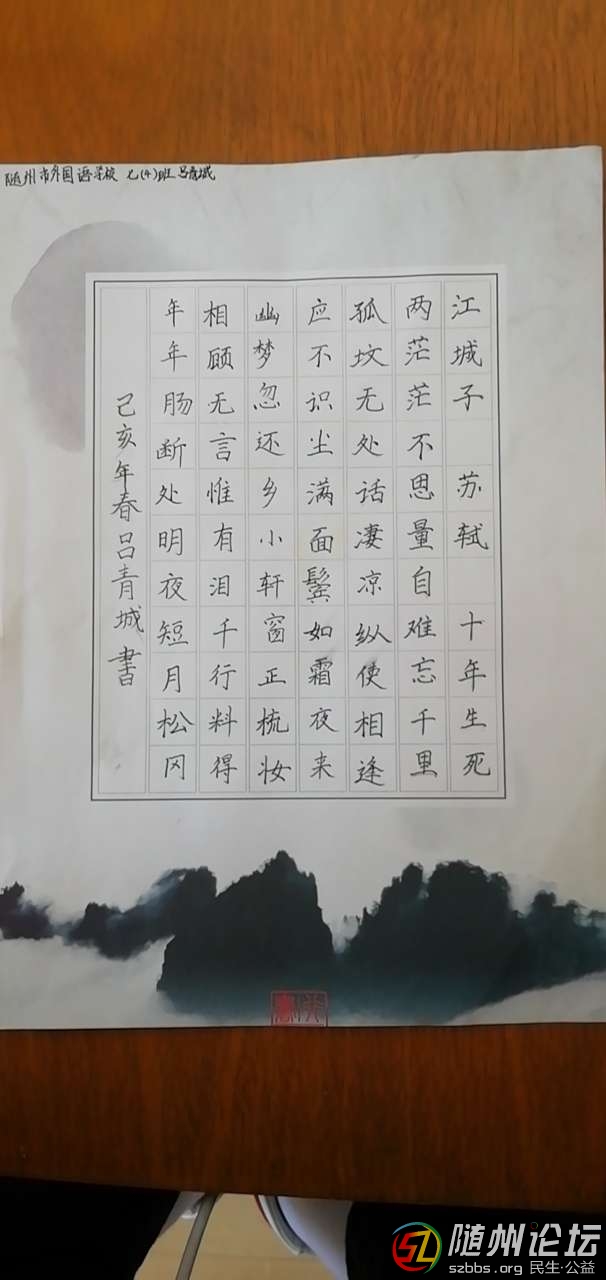 随州市外国语学校 七(4)班 吕青城
江城子 苏轼 十年生死
两茫茫不思量自难忘千里
孤坟无处话凄凉纵使相逢
应不识尘满面鬓如霜夜来
幽梦忽还乡小轩窗正梳妆
相顾无言惟有泪千行料得
年年肠断处明夜短月松冈
己亥年春吕青城書
随州论坛
szbbs.org 民生·公益